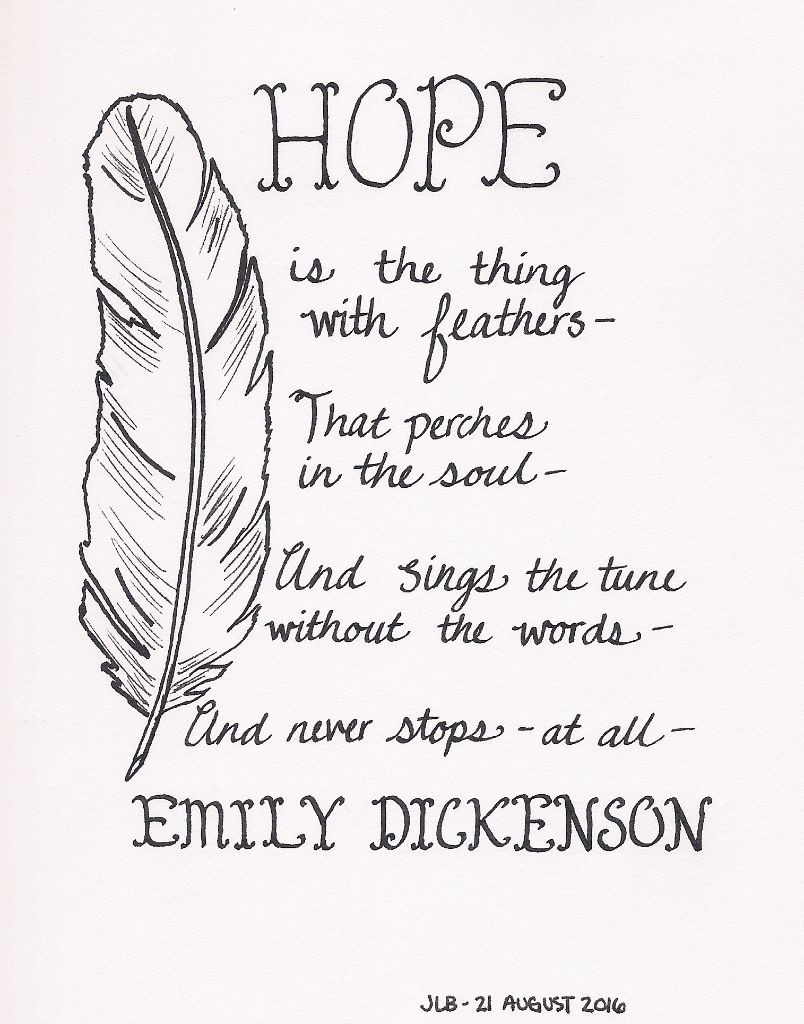 HOPE
is the thing
with feathers-
That perches
in the soul-
And sings the tune
without the words-
And never stops - at all-
EMILY DICKENSON
JLB - 21 AUGUST 2016